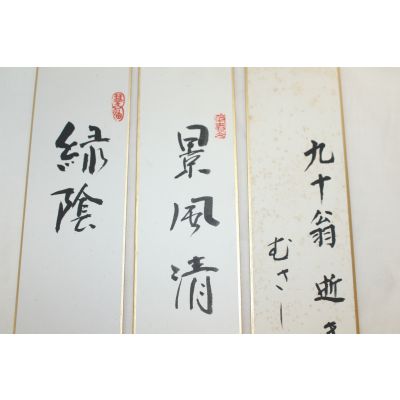 九十翁逝き
むさし
景風清
緑陰